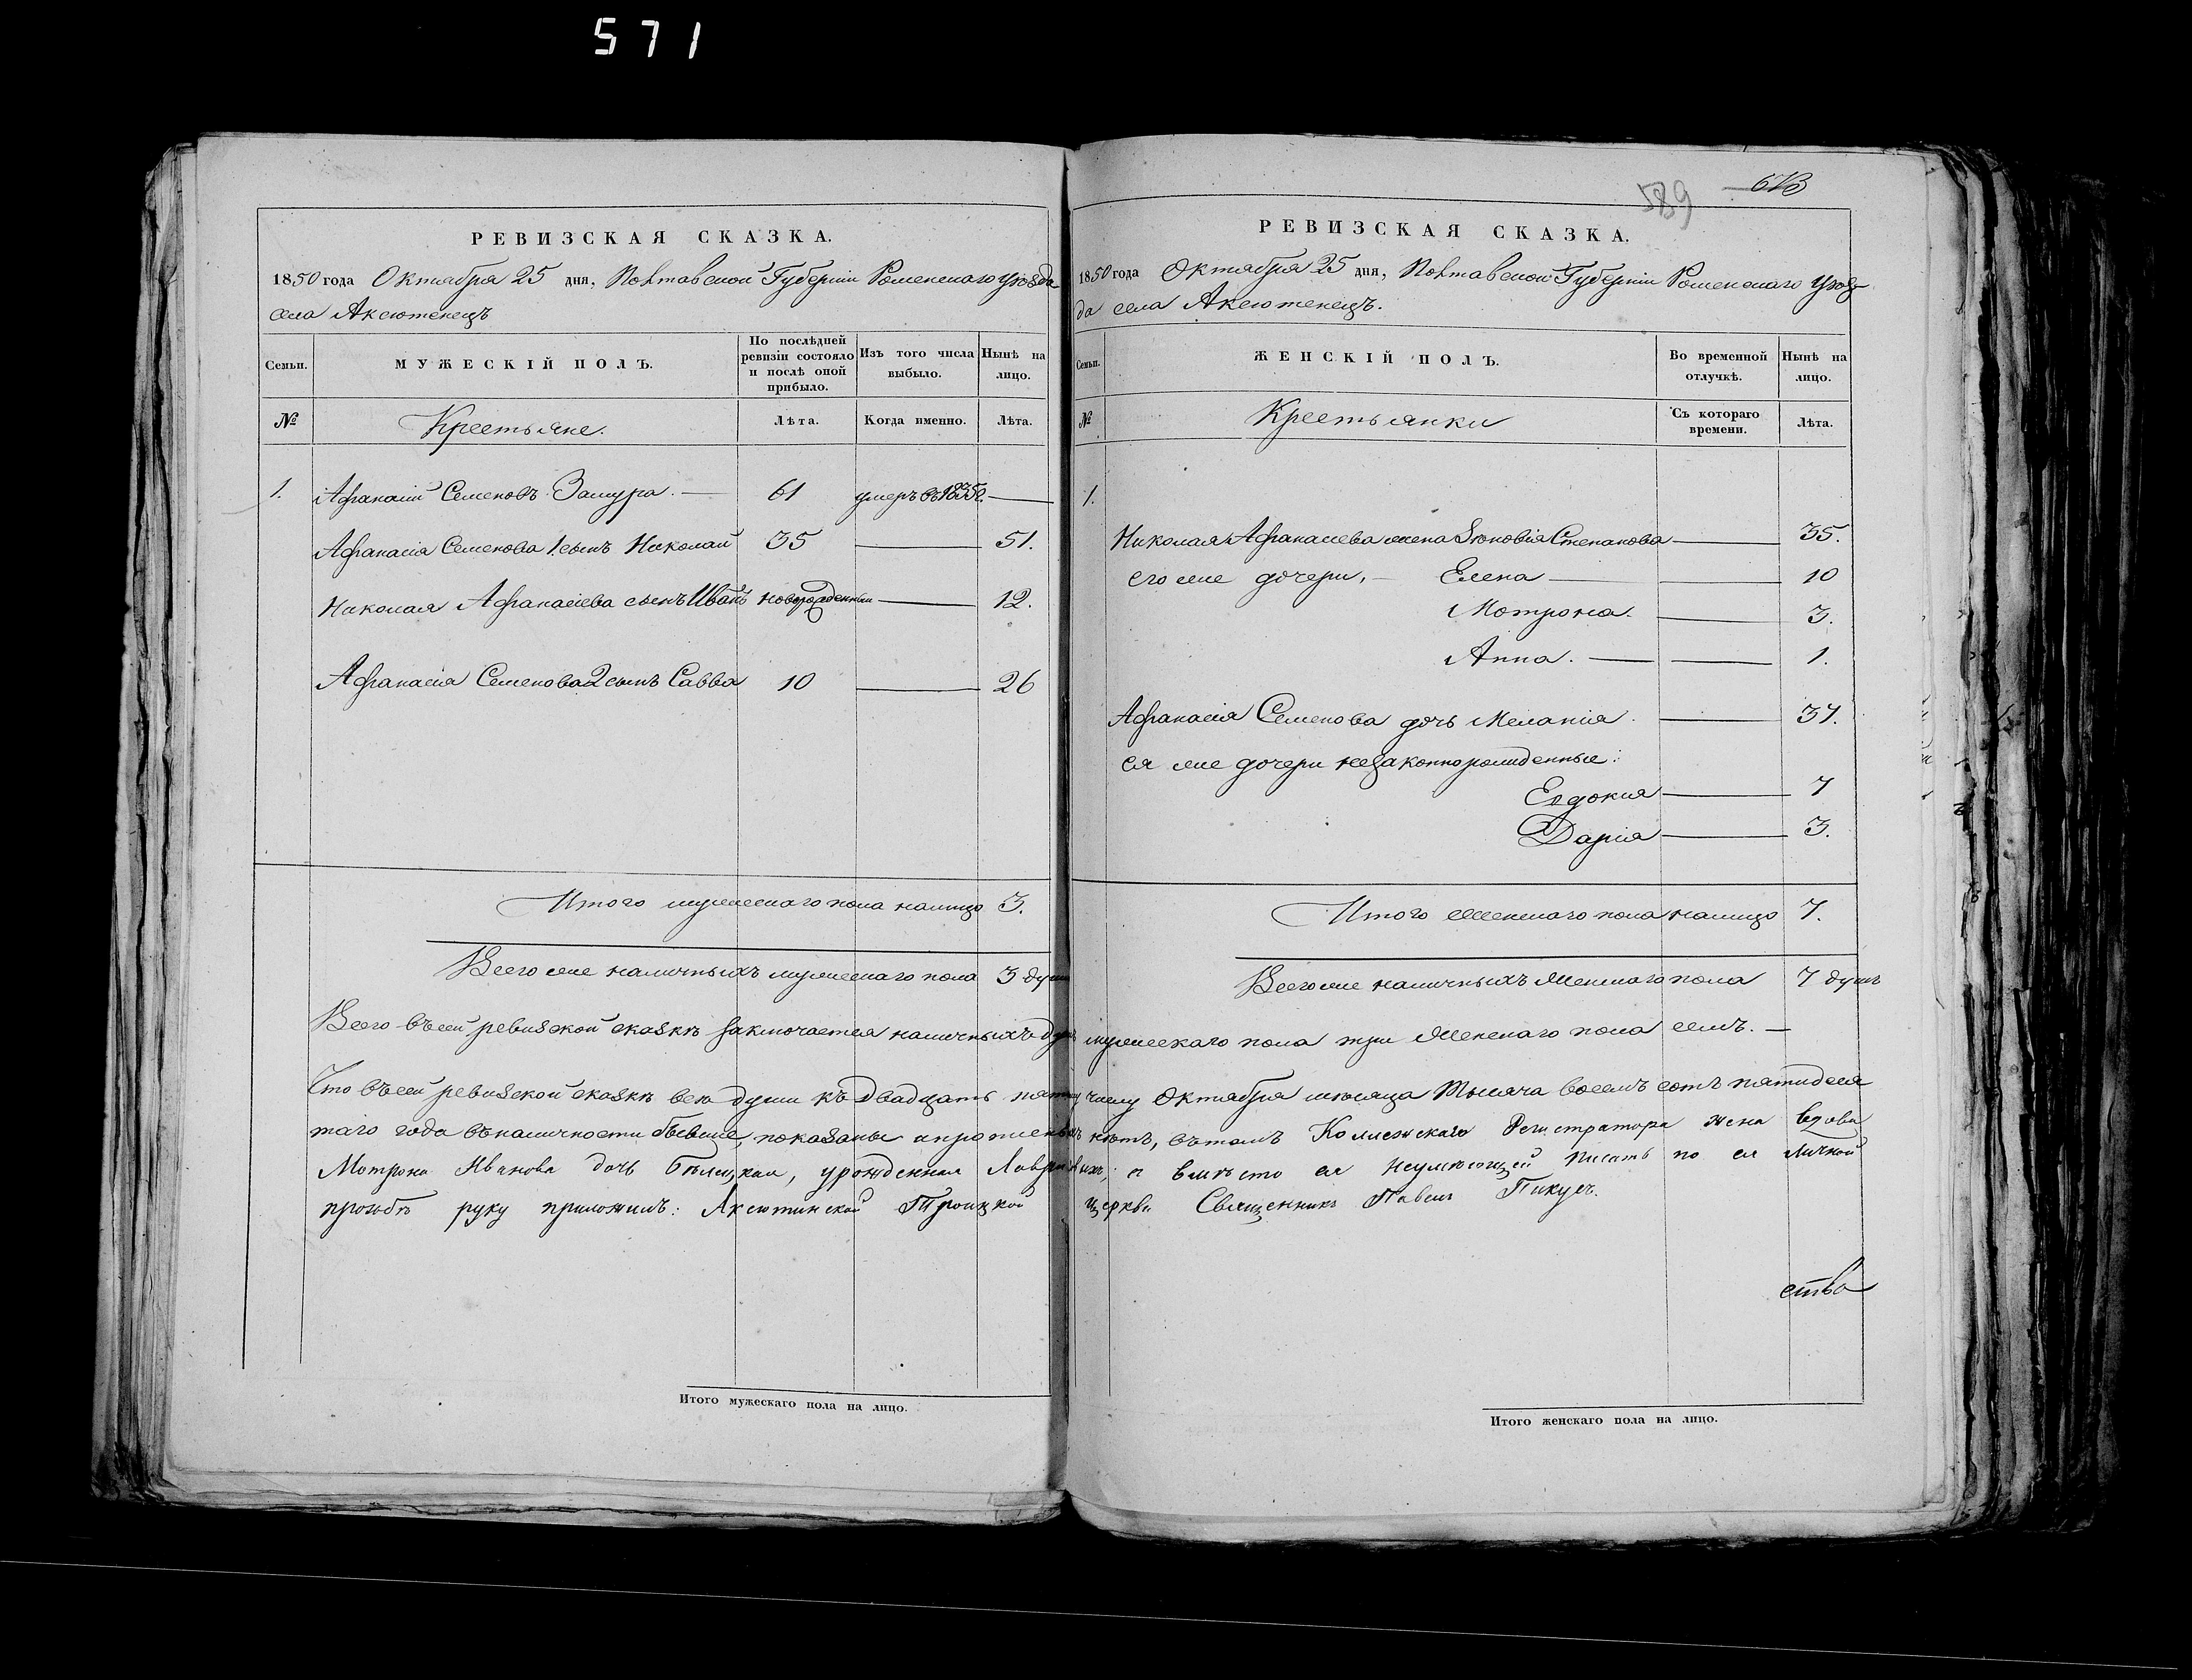 571
РЕВИЗСКАЯ СКАЗКА.
1850 года Октября 25 дня, Полтавской Губерніи Роменскаго уѣзда
села Аксютенецъ
Семьи.
МУЖЕСКІЙ ПОЛЪ.
По послѣдней ревизіи состояло и послѣ оной прибыло.
Изъ того числа выбыло.
Нынѣ на лицо.
№
Крестьяне.
Лѣта.
Когда именно.
Лѣта.
1. Афанасій Семеновъ Замура. — 61 умеръ въ 1835 г. —
Афанасія Семенова 1. сынъ Николай 35 — 51.
Николая Афанасіева сынъ Иванъ новорожденный — 12.
Афанасія Семенова 2 сынъ Савва 10 — 26
Итого мужескаго пола налицо 3.
Всего же наличныхъ мужескаго пола 3 душ
589 613
РЕВИЗСКАЯ СКАЗКА.
1850 года Октября 25 дня, Полтавской Губерніи Роменскаго уѣз
да села Аксютенецъ.
Семьи.
ЖЕНСКІЙ ПОЛЪ.
Во временной отлучкѣ.
Нынѣ на лицо.
№
Крестьянки
Съ котораго времени.
Лѣта.
1.
Николая Афанасіева жена Зѣновія Степанова — 35.
его же дочери, — Елена — 10
Мотрона. — 3.
Анна. — 1.
Афанасія Семенова дочь Меланія. — 37.
ея же дочери незаконнорожденные:
Евдокия — 7
Дарія — 3.
Итого Женскаго пола налицо 7.
Всего же наличныхъ Женскаго пола 7 душъ
Всего въ сей ревизской сказкѣ заключается наличныхъ душъ мужескаго пола три Женскаго пола семъ. —
Что въ сей ревизской сказкѣ всѣ души къ двадцать пятому числу Октября мѣсяца Тысяча восемъ сотъ пятидеся
таго года въ наличности бывшіе показаны и прописныхъ нѣтъ, въ томъ Коллежскаго Регистратора жена вдова
Мотрона Иванова дочь Бѣлецкая, урожденная а вмѣсто ея неумѣющей писать по ея личной
прозьбѣ руку приложилъ: Аксютинской Троицкой церкви Священникъ Павелъ Пикусъ.
ства
Итого мужескаго пола на лицо.
Итого женскаго пола на лицо.